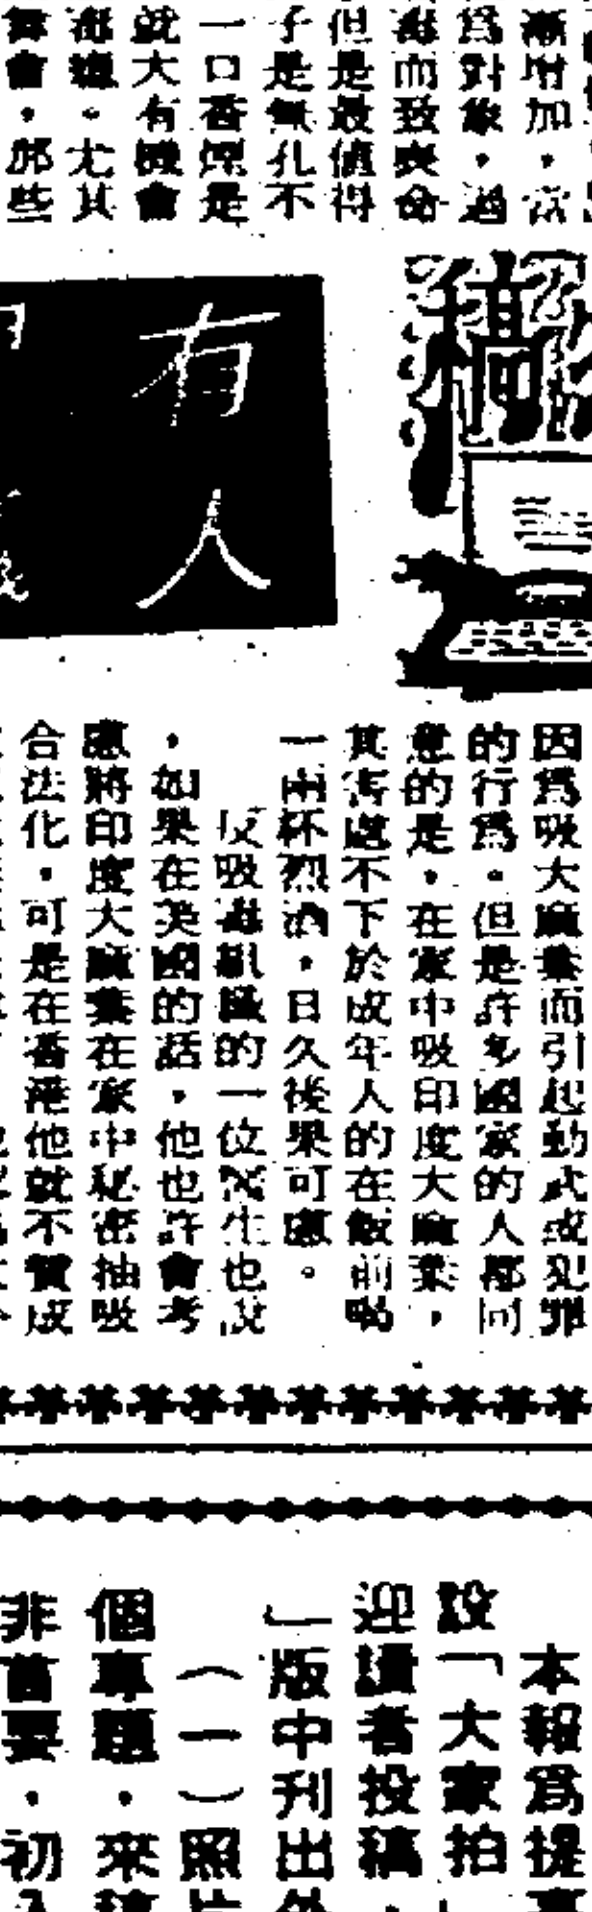 漸增加，當
爲對象，過
毒而致喪命
但是最值得
子是無孔不
一口香煙是
就大有機會
毒癮。尤其
舞會，那些
稿
有人
因爲吸大麻葉而引起動武或犯罪
的行爲。但是許多國家的人都同
意的是，在家中吸印度大麻葉，
其害處不下於成年人的在飯前喝
一兩杯烈酒，日久後果可慮。
反吸毒組織的一位醫生也說
，如果在美國的話，他也許會考
慮將印度大麻葉在家中秘密抽吸
合法化，可是在香港他就不贊成
本報爲提高
設「大家拍
迎讀者投稿，
」版中刊出外
（一）照片
個專題，來稿
非舊要，初入